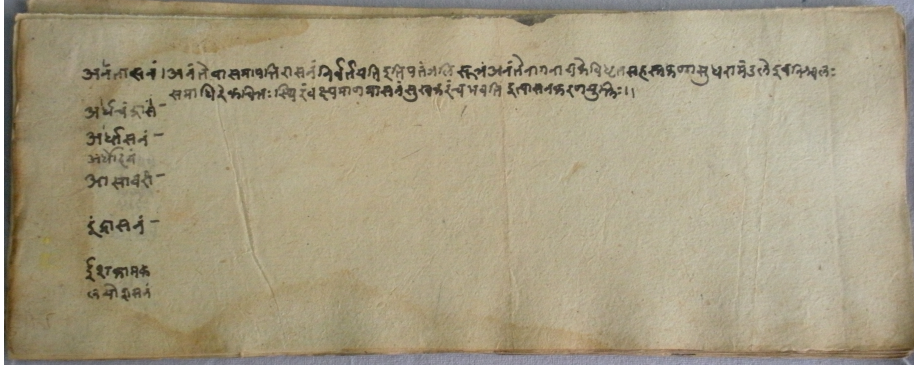 अनंतासनं। अनंते वा समापत्तिरासनं निर्वर्तयति इति पतंजलि सूत्रं अनंते नागनायके विधृतसहस्रफणासु धरामंडले इव निश्चलः
समाधिरेकचित्तः स्थिरं वक्ष्यमाणमासनं सुखकरं च भवति इत्यासनकरणयुक्तिः॥
अर्धचंद्रासं-
अर्धासनं-
आसावरी-
इंद्रासनं-